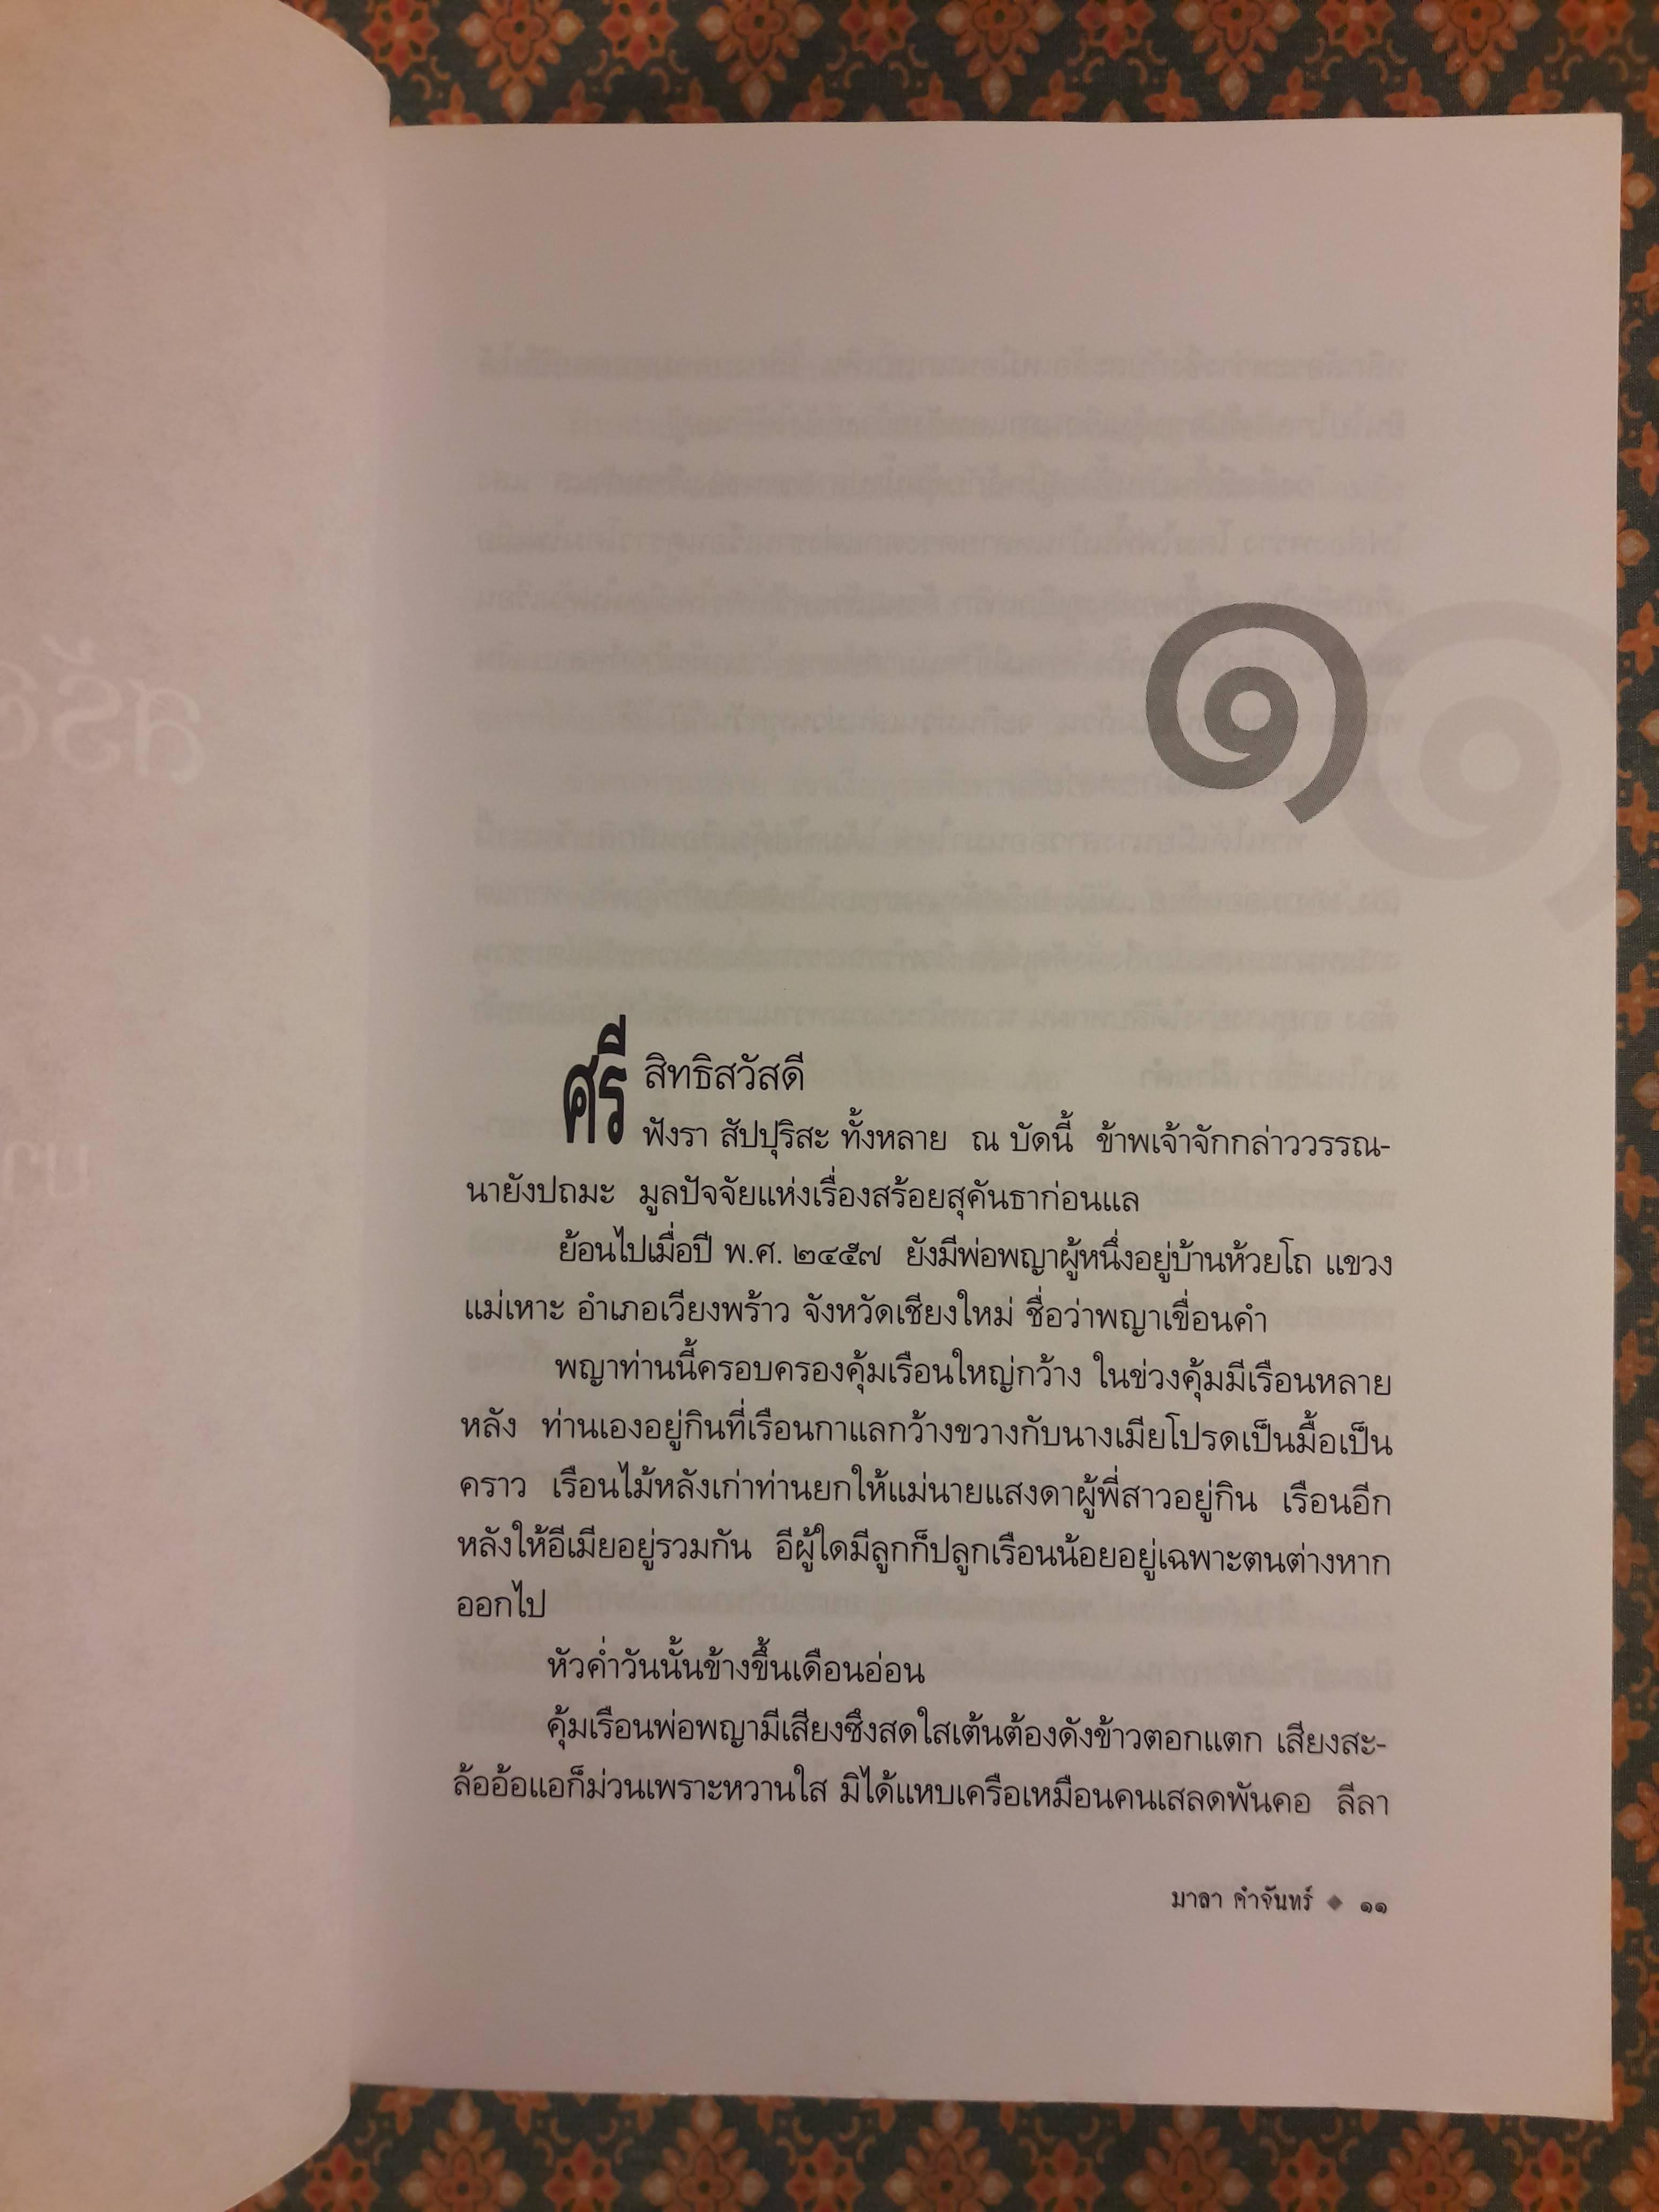 ๑
ศรีสิทธิสวัสดี
ฟังรา สัปปุริสะ ทั้งหลาย ณ บัดนี้ ข้าพเจ้าจักกล่าววรรณ-
นายังปถมะ มูลปัจจัยแห่งเรื่องสร้อยสุคันธาก่อนแล
ย้อนไปเมื่อปี พ.ศ. ๒๔๕๗ ยังมีพ่อพญาผู้หนึ่งอยู่บ้านห้วยโถ แขวง
แม่เหาะ อำเภอเวียงพร้าว จังหวัดเชียงใหม่ ชื่อว่าพญาเขื่อนคำ
พญาท่านนี้ครอบครองคุ้มเรือนใหญ่กว้าง ในข่วงคุ้มมีเรือนหลาย
หลัง ท่านเองอยู่กินที่เรือนกาแลกว้างขวางกับนางเมียโปรดเป็นมื้อเป็น
คราว เรือนไม้หลังเก่าท่านยกให้แม่นายแสงดาผู้พี่สาวอยู่กิน เรือนอีก
หลังให้อีเมียอยู่รวมกัน อีผู้ใดมีลูกก็ปลูกเรือนน้อยอยู่เฉพาะตนต่างหาก
ออกไป
หัวค่ำวันนั้นข้างขึ้นเดือนอ่อน
คุ้มเรือนพ่อพญามีเสียงซึงสดใสเต้นต้องดังข้าวตอกแตก เสียงสะ-
ล้ออ้อแอก็ม่วนเพราะหวานใส มิได้แหบเครือเหมือนคนเสลดพันคอ ลีลา
มาลา คำจันทร์ ◆ ๑๑